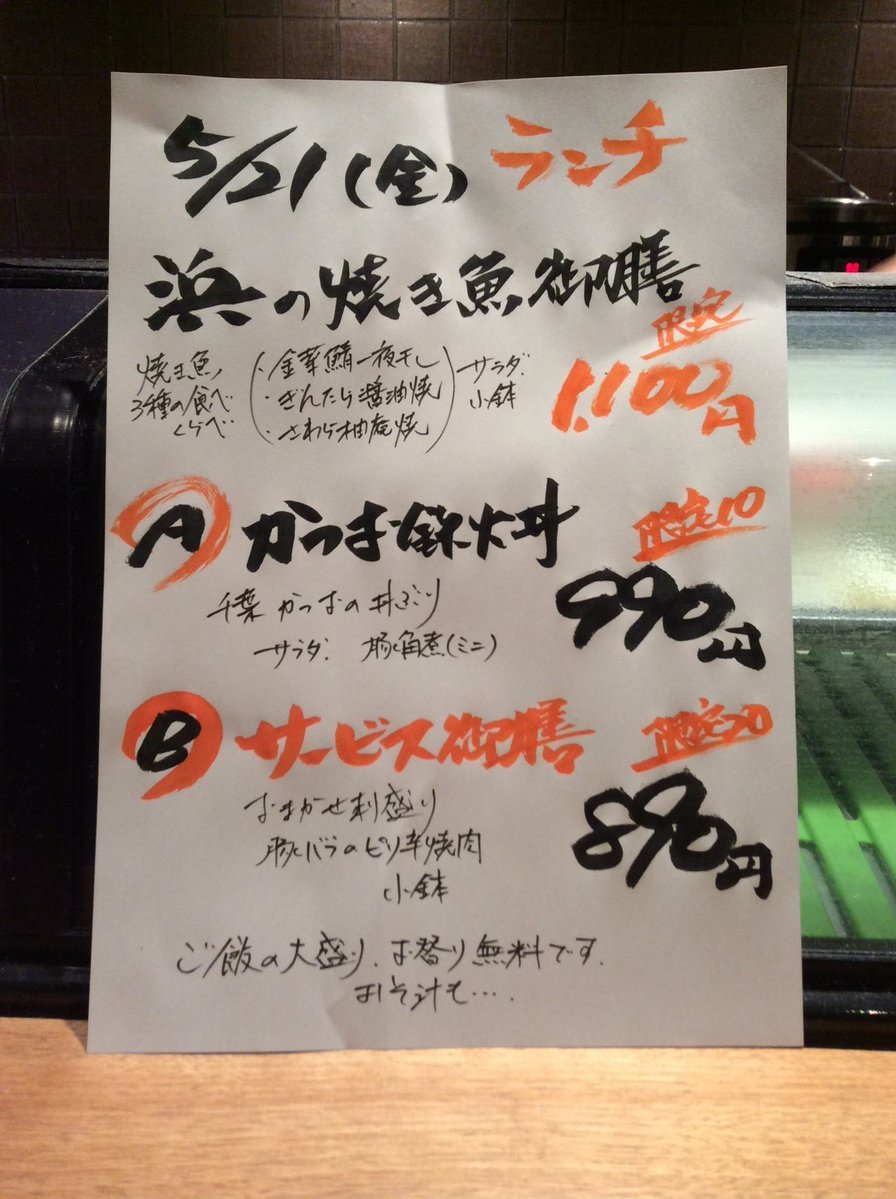 5/21(金) ランチ
浜の焼き魚御膳
限定
1,100円
焼き魚
3種の食べ
くらべ
・金華鯖一夜干し
・ぎんだら醤油焼
・さわら柚庵焼
サラダ
小鉢
A かつお鉄火丼
限定10
990円
千葉 かつおの丼ぶり
サラダ. 豚角煮(ミニ)
B サービス御膳
限定20
890円
おまかせ刺盛り
豚バラのピリ辛焼肉
小鉢
ご飯の大盛り、お替り無料です.
みそ汁も….